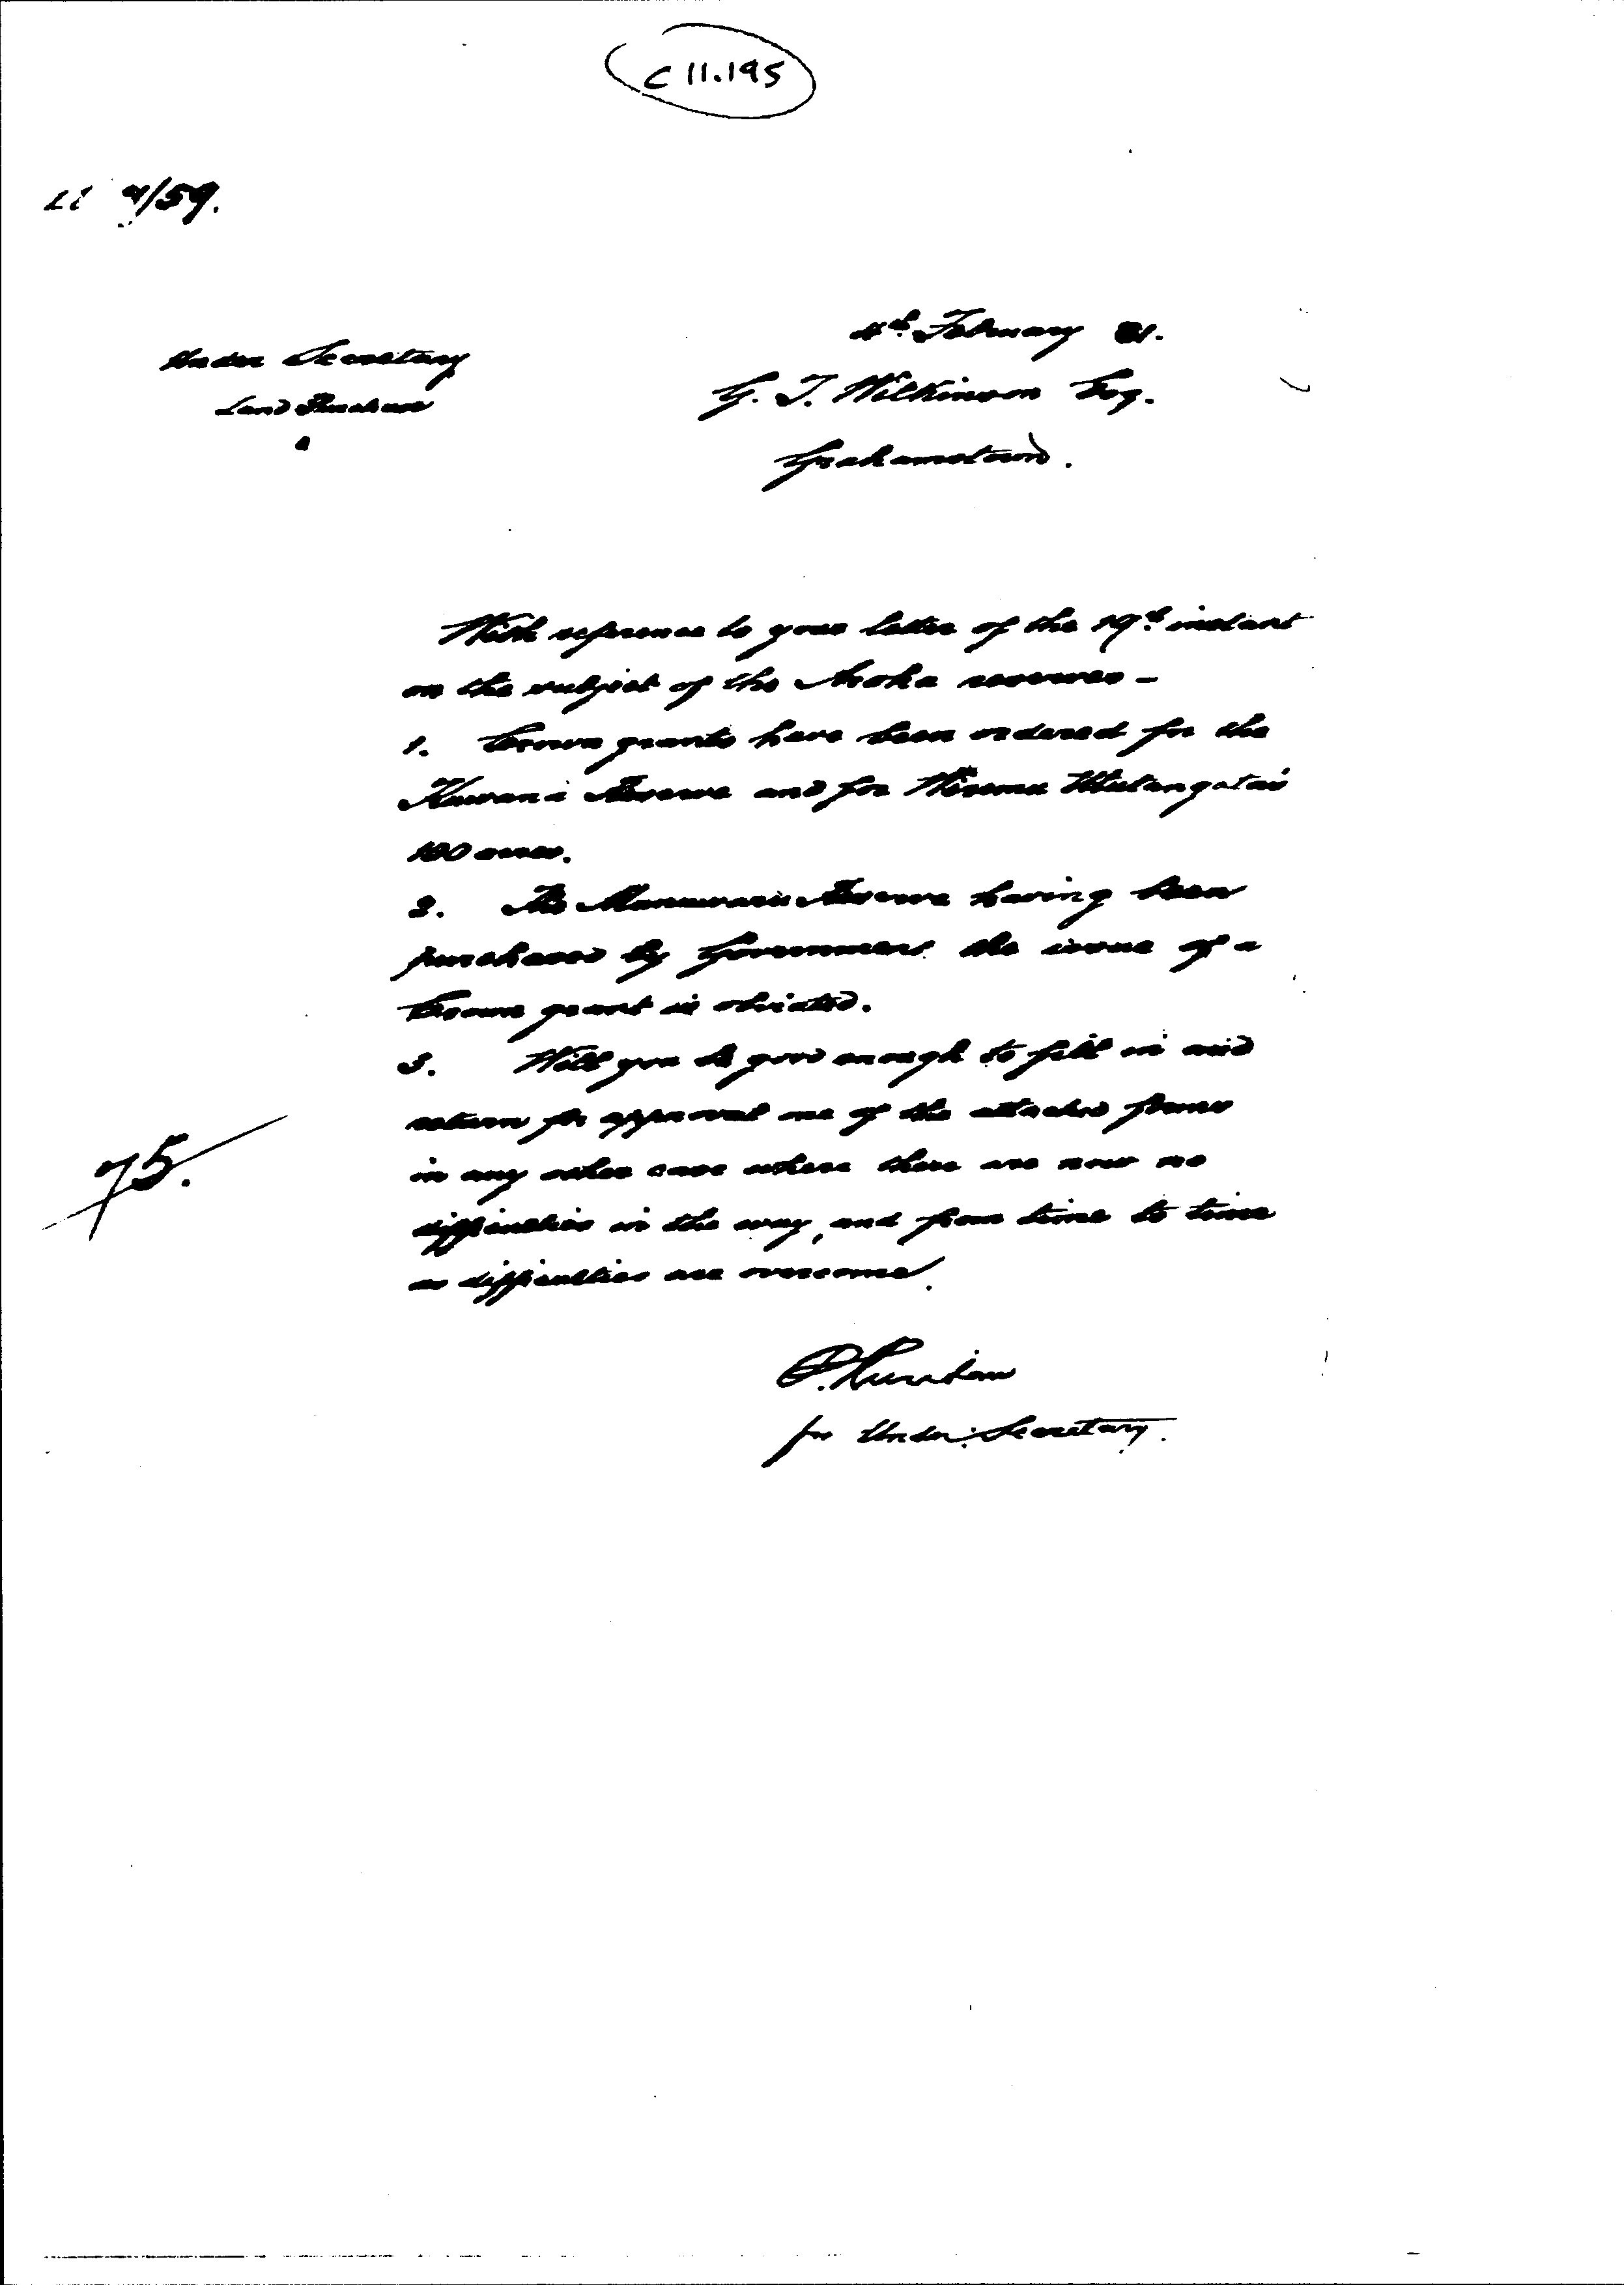 C 11.195
4/59.
4th February 81.
Under Secretary
Land Purchase
G. T. Wilkinson Esq.
Grahamstown.
With reference to your letter of the 19th instant
on the subject of the Aroha reserves –
1. Crown grants have been ordered for the
Reserve and for Wiremu
100 acres.
2. The Manawaru Reserve having been
purchased by Government the issue of a
Crown grant is obviated.
3. Will you be good enough to fill in and
return for approval one of the attached forms
in any other case where there are now no
difficulties in the way, and from time to time
as difficulties are overcome.
P. Sheridan
for Under Secretary.
75.